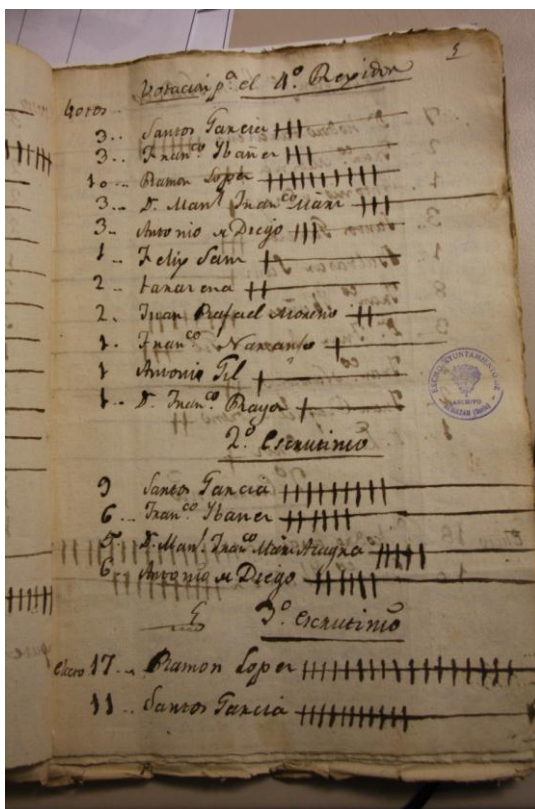 5
Votacion pa. el 4o. Rexidor
botos
3.. Santos Garcia
3.. Franco. Ibañez
10.. Ramon Lopez
3.. D. Manl. Franco Marz
3.. Antonio de Diego
1.. Felix Sanz
2.. Lanarena
2.. Juan Rafael Moreno
1. Franco. Naranjo
1 Antonio Gil
1.. D. Franco. Rayon
2o. Escrutinio
9 Santos Garcia
6.. Franco Ibañez
5.. D. Manl. Franco Marz
6.. Antonio de Diego
3o. Escrutinio
electo 17.. Ramon Lopez
11.. Santos Garcia